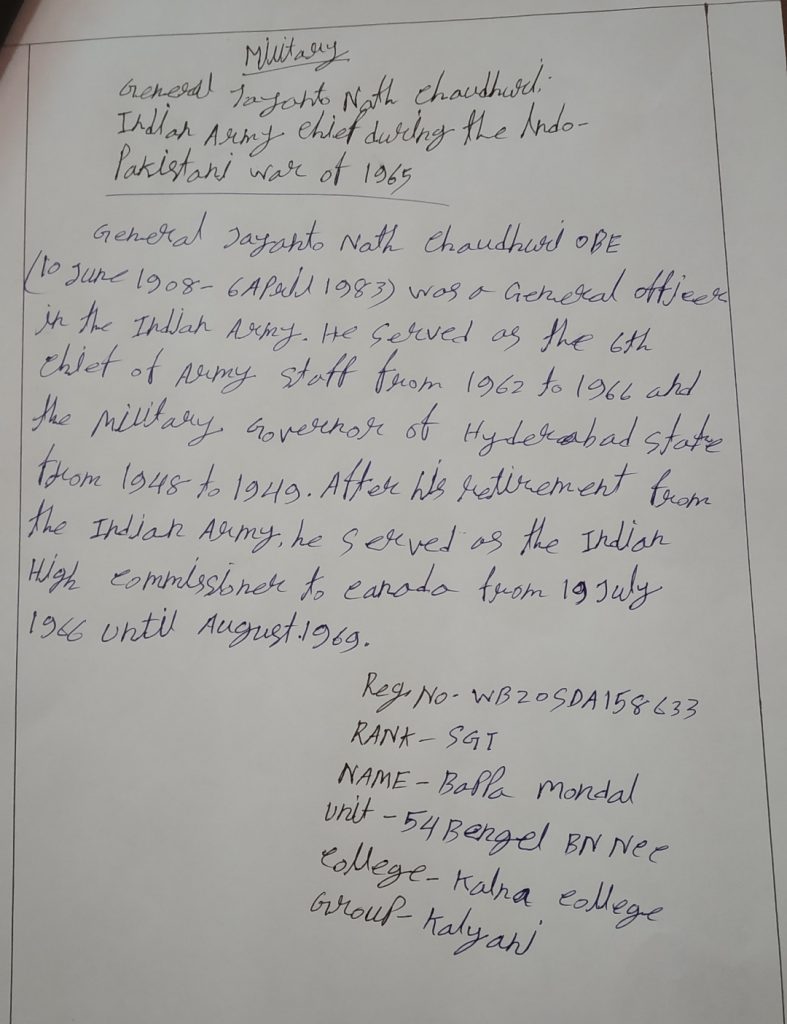 Military
General Jayanto Nath Chaudhuri:
Indian Army Chief during the Indo-
Pakistani war of 1965
General Jayanto Nath Chaudhuri OBE
(10 June 1908 - 6 April 1983) was a General officer
in the Indian Army. He served as the 6th
Chief of Army staff from 1962 to 1966 and
the Military Governor of Hyderabad state
from 1948 to 1949. After his retirement from
the Indian Army, he served as the Indian
High commissioner to canada from 19 July
1966 until August.1969.
Reg. No - WB20SDA158633
RANK - SGT
NAME - Bappa Mondal
Unit - 54 Bengel BN Ncc
College - Kalna College
Group - Kalyani